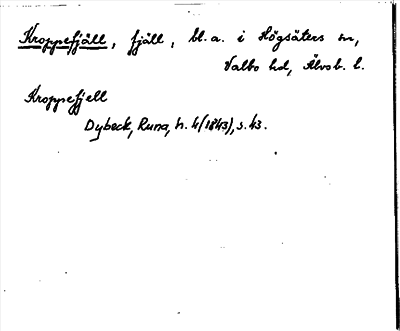 Kroppefjäll, fjäll, bl.a. i Högsäters sn,
Valbo hd, Älvsb. l.
Kroppefjell
Dybeck, Runa, h. 4 (1843), s. 43.